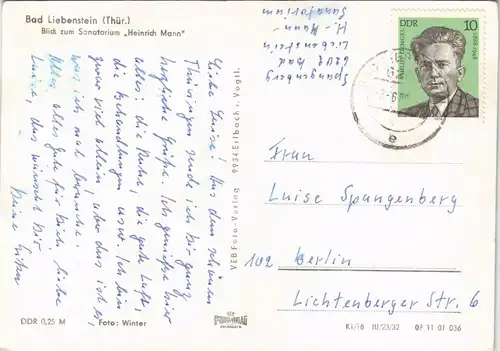 Bad Liebenstein (Thür.)
Blick zum Sanatorium „Heinrich Mann"
Spangenberg
6202 Bad
Liebenstein
H.-Mann-
Sanatorium
DDR
10
Liebe Luise! Aus dem schönen
Thüringen sende ich Dir ganz
herzliche Grüße. Ich genieße hier
alles: die Ruhe, die gute Luft,
die Behandlungen usw. Ich bin
zwar viel allein, aber das ist es,
was ich mal brauche.
Alles, alles Gute für Dich, liebe
Luise, das wünscht Dir
Deine
VEB Foto-Verlag 9934 Erlbach i. Vogtl.
Frau
Luise Spangenberg
102 Berlin
Lichtenberger Str. 6
DDR 0,25 M Foto: Winter
K1/76 III/23/32 07 11 01 036